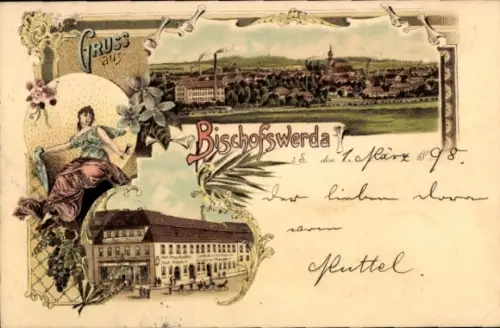 GRUSS
aus
Bischofswerda
i. S. den 1. März 1898.
Der lieben Dora
von
Muttel.